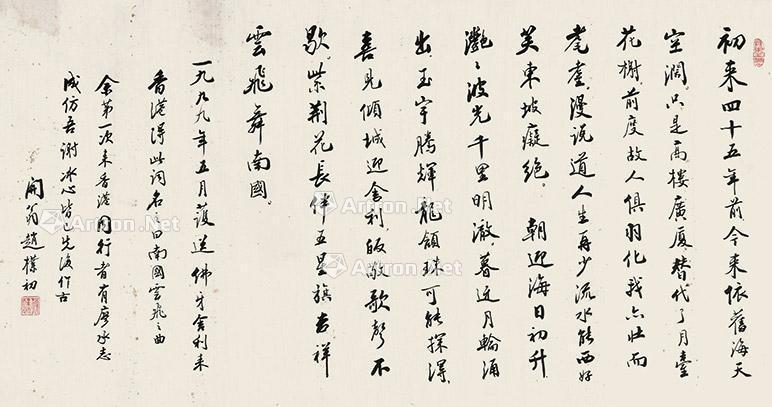 初来四十五年前今来依舊海天
空濶只是高樓廣厦替代了月臺
花榭前度故人俱羽化我亦壮而
耄耋漫说道人生再少流水能西好
笑東坡癡絶。朝迎海日初升
灔灔波光千里明澈暮近月輪涌
出玉宇騰輝龍領珠可能探得
喜見傾城迎舍利皈敬歌聲不
歇紫荆花長伴五星旗吉祥
雲飛舞南國。
一九九九年五月護送佛牙舍利来
香港得此词名之曰南國雲飛之曲
余第一次来香港同行者有廖承志
成仿吾谢冰心皆已先後作古
開翁趙樸初
Artron.Net
Artron.Net
Artron.Net
Artron.Net